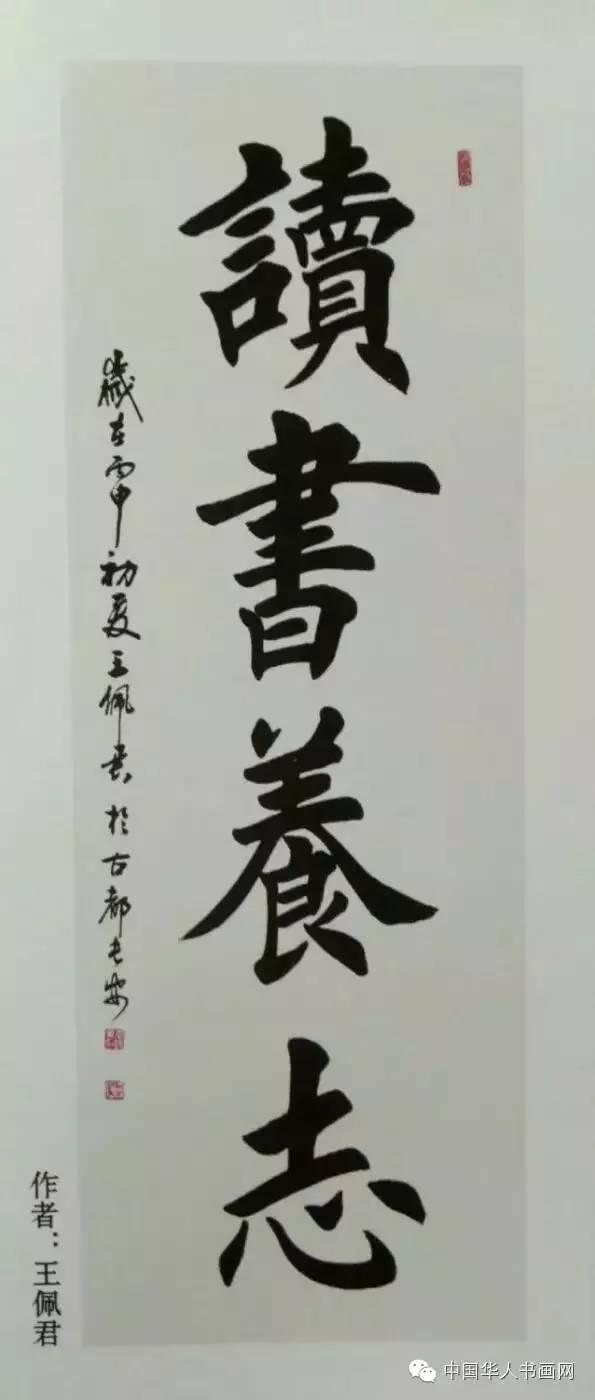 讀書養志
歲在丙申初夏王佩君於古都長安
作者：王佩君
中国华人书画网